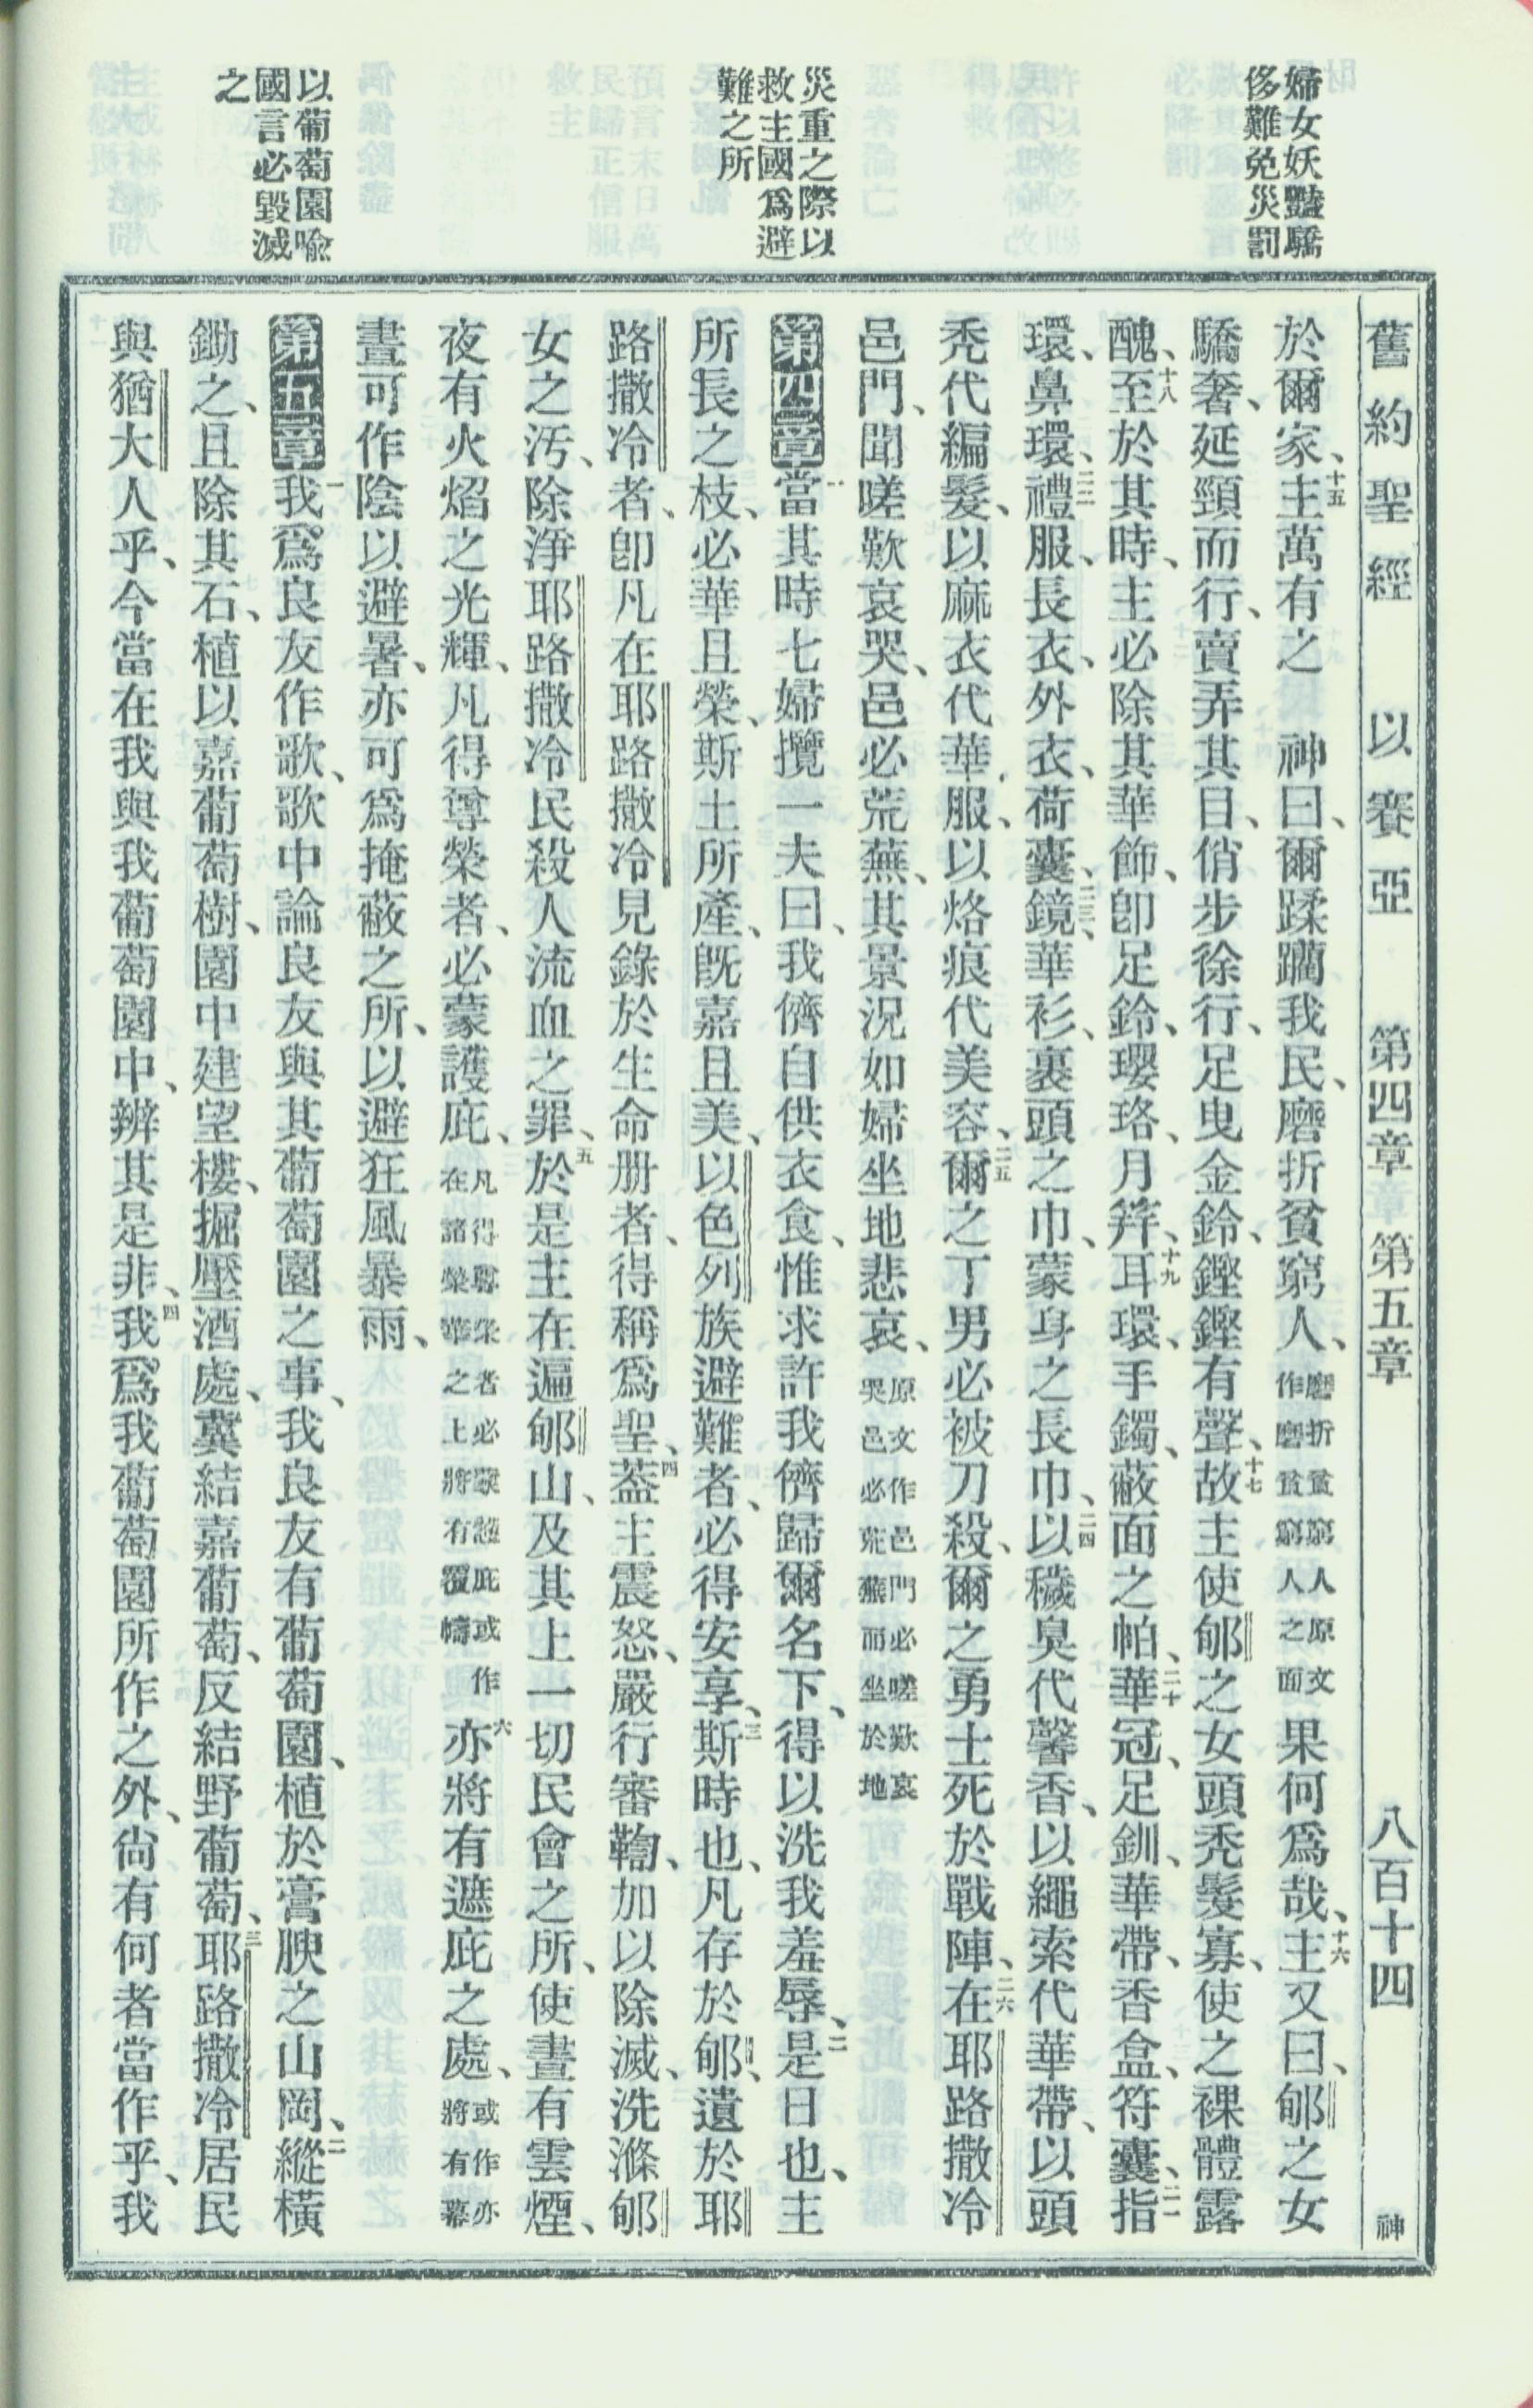 舊約聖經　以賽亞　第四章　第五章　八百十四　神
婦女妖豔驕
侈難免災罰
災重之際以
救主國爲避
難之所
以葡萄園喩
國言必毀滅
之
於爾家、十五主萬有之　神曰、爾蹂躪我民、磨折貧窮人、磨折貧窮人原文作磨貧窮人之面果何爲哉、十六主又曰、郇之女
驕奢、延頸而行、賣弄其目、俏步徐行、足曳金鈴、鏗鏗有聲、十七故主使郇之女頭禿髮寡、使之裸體露
醜、十八至於其時、主必除其華飾、卽足鈴、瓔珞、月筓、十九耳環、手鐲、蔽面之帕、二十華冠、足釧、華帶、香盒、符囊、二一指
環、鼻環、二二禮服、長衣、外衣、荷囊、二三鏡、華衫、裹頭之巾、蒙身之長巾、二四以穢臭代馨香、以繩索代華帶、以頭
禿代編髮、以麻衣代華服、以烙痕代美容、二五爾之丁男必被刀殺、爾之勇士死於戰陣、二六在耶路撒冷
邑門、聞嗟歎哀哭、邑必荒蕪、其景況如婦坐地悲哀、原文作邑門必嗟歎哀哭邑必荒蕪而坐於地
第四章一當其時七婦攬一夫曰、我儕自供衣食、惟求許我儕歸爾名下、得以洗我羞辱、二是日也、主
所長之枝、必華且榮、斯土所產、旣嘉且美、以色列族避難者、必得安享、三斯時也、凡存於郇、遺於耶
路撒冷者、卽凡在耶路撒冷見錄於生命册者、得稱爲聖、四蓋主震怒、嚴行審鞫、加以除滅、洗滌郇
女之汚、除淨耶路撒冷民殺人流血之罪、五於是主在遍郇山、及其上一切民會之所、使晝有雲煙、
夜有火焰之光輝、凡得尊榮者、必蒙護庇、凡得尊榮者必蒙護庇或作在諸榮華之上將有覆幬六亦將有遮庇之處、或作亦將有幕
晝可作陰以避暑、亦可爲掩蔽之所、以避狂風暴雨、
第五章一我爲良友作歌、歌中論良友與其葡萄園之事、我良友有葡萄園、植於膏腴之山岡、二縱橫
鋤之、且除其石、植以嘉葡萄樹、園中建望樓、掘壓酒處、冀結嘉葡萄、反結野葡萄、三耶路撒冷居民
與猶大人乎、今當在我與我葡萄園中、辨其是非、四我爲我葡萄園所作之外、尙有何者當作乎、我